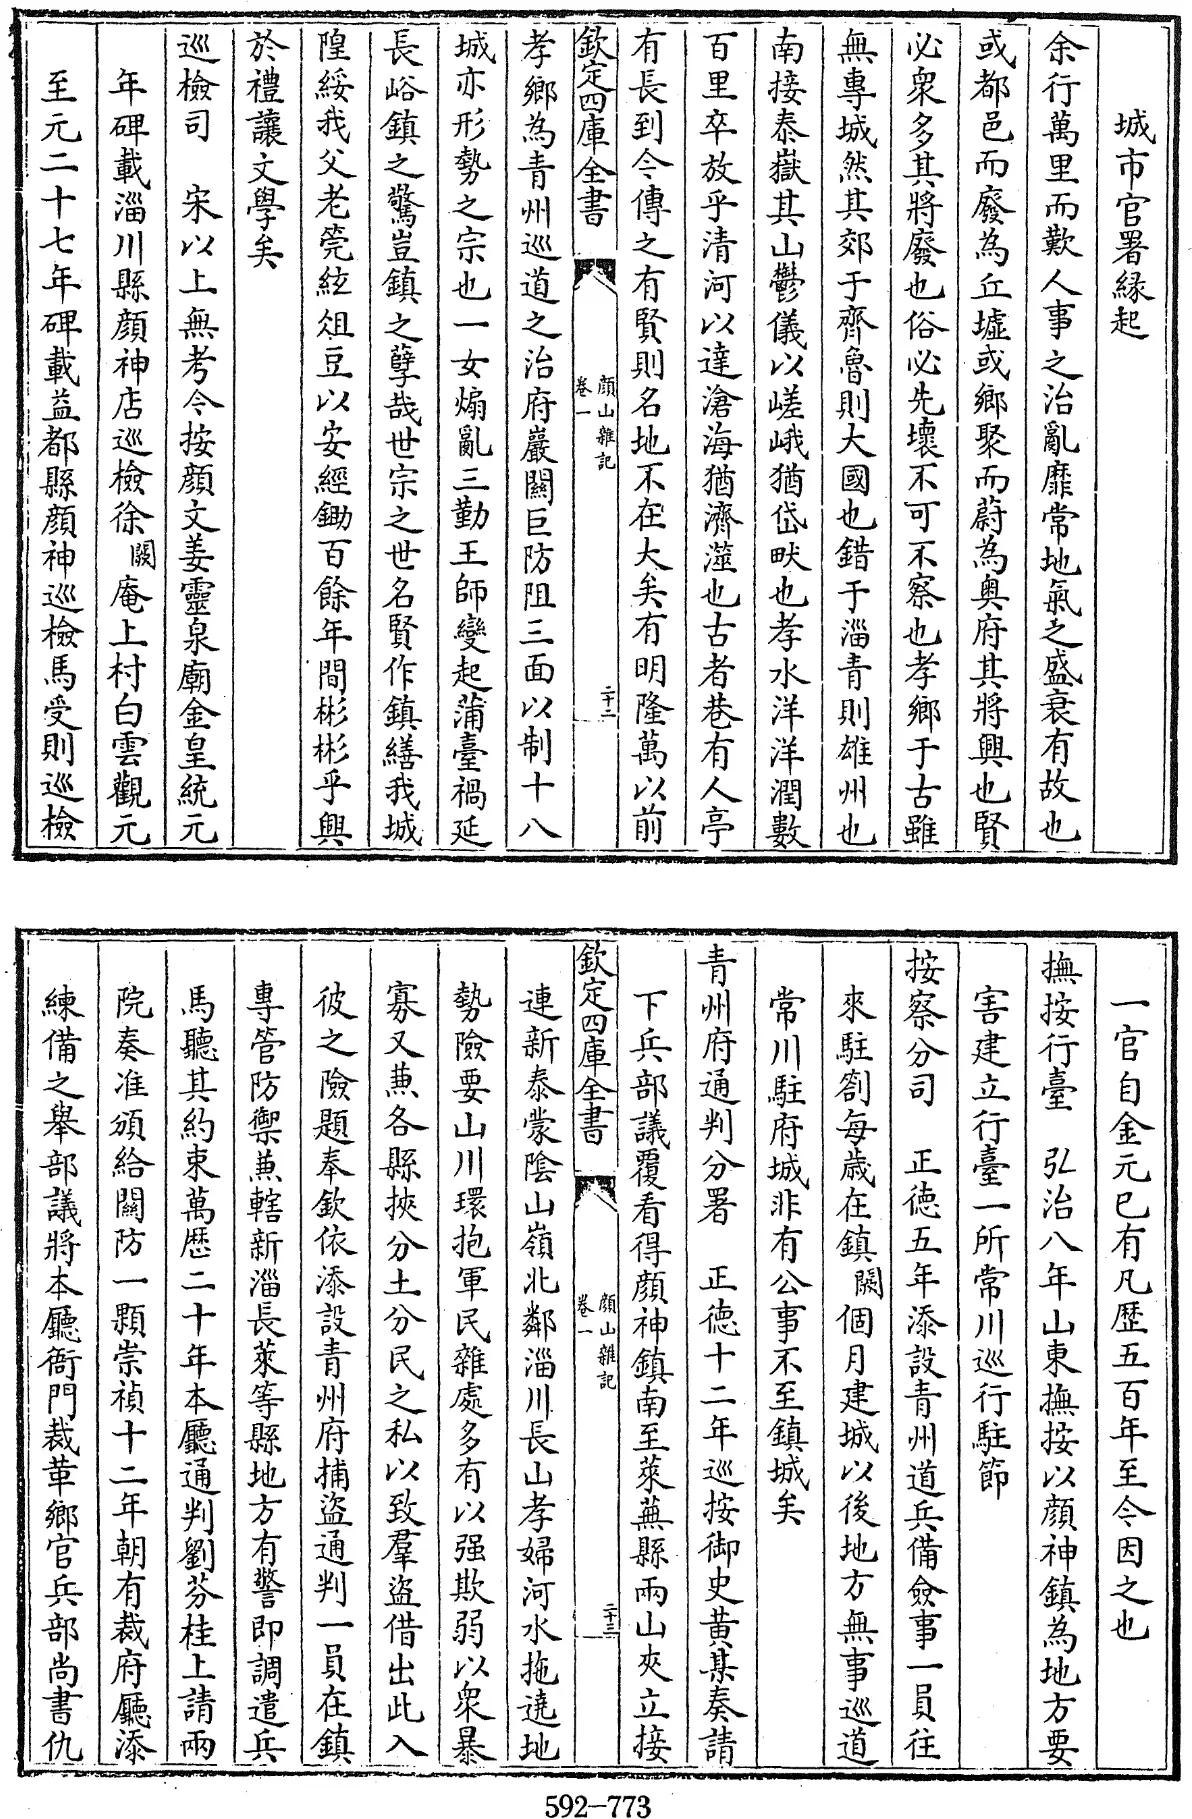 城市官署緣起
余行萬里而歎人事之治亂靡常地氣之盛衰有故也
或都邑而廢為丘墟或鄉聚而蔚為奥府其將興也賢
必衆多其將廢也俗必先壞不可不察也孝鄉于古雖
無專城然其郊于齊魯則大國也錯于淄青則雄州也
南接泰嶽其山鬱儀以嵯峨猶岱畎也孝水洋洋潤數
百里卒放乎清河以達滄海猶濟漯也古者巷有人亭
有長到今傳之有賢則名地不在大矣有明隆萬以前
欽定四庫全書
顔山雜記
卷一
二十二
孝鄉為青州巡道之治府巖關巨防阻三面以制十八
城亦形勢之宗也一女煽亂三勤王師變起蒲臺禍延
長峪鎮之驚豈鎮之孽哉世宗之世名賢作鎮繕我城
隍綏我父老筦絃俎豆以安經鋤百餘年間彬彬乎興
於禮讓文學矣
巡檢司　宋以上無考今按顔文姜靈泉廟金皇統元
年碑載淄川縣顔神店巡檢徐闕庵上村白雲觀元
至元二十七年碑載益都縣顔神巡檢馬受則巡檢
一官自金元已有凡歷五百年至今因之也
撫按行臺　弘治八年山東撫按以顔神鎮為地方要
害建立行臺一所常川巡行駐節
按察分司　正德五年添設青州道兵備僉事一員往
來駐劄每歲在鎮闕個月建城以後地方無事巡道
常川駐府城非有公事不至鎮城矣
青州府通判分署　正德十二年巡按御史黄某奏請
下兵部議覆看得顔神鎮南至萊蕪縣兩山夾立接
欽定四庫全書
顔山雜記
卷一
二十三
連新泰蒙陰山嶺北鄰淄川長山孝婦河水拖遶地
勢險要山川環抱軍民雜處多有以强欺弱以衆暴
寡又兼各縣挾分土分民之私以致羣盜借出此入
彼之險題奉欽依添設青州府捕盜通判一員在鎮
專管防禦兼轄新淄長萊等縣地方有警即調遣兵
馬聽其約束萬歷二十年本廳通判劉芬桂上請兩
院奏准頒給關防一顆崇禎十二年朝有裁府廳添
練備之舉部議將本廳衙門裁革鄉官兵部尚書仇
592-773